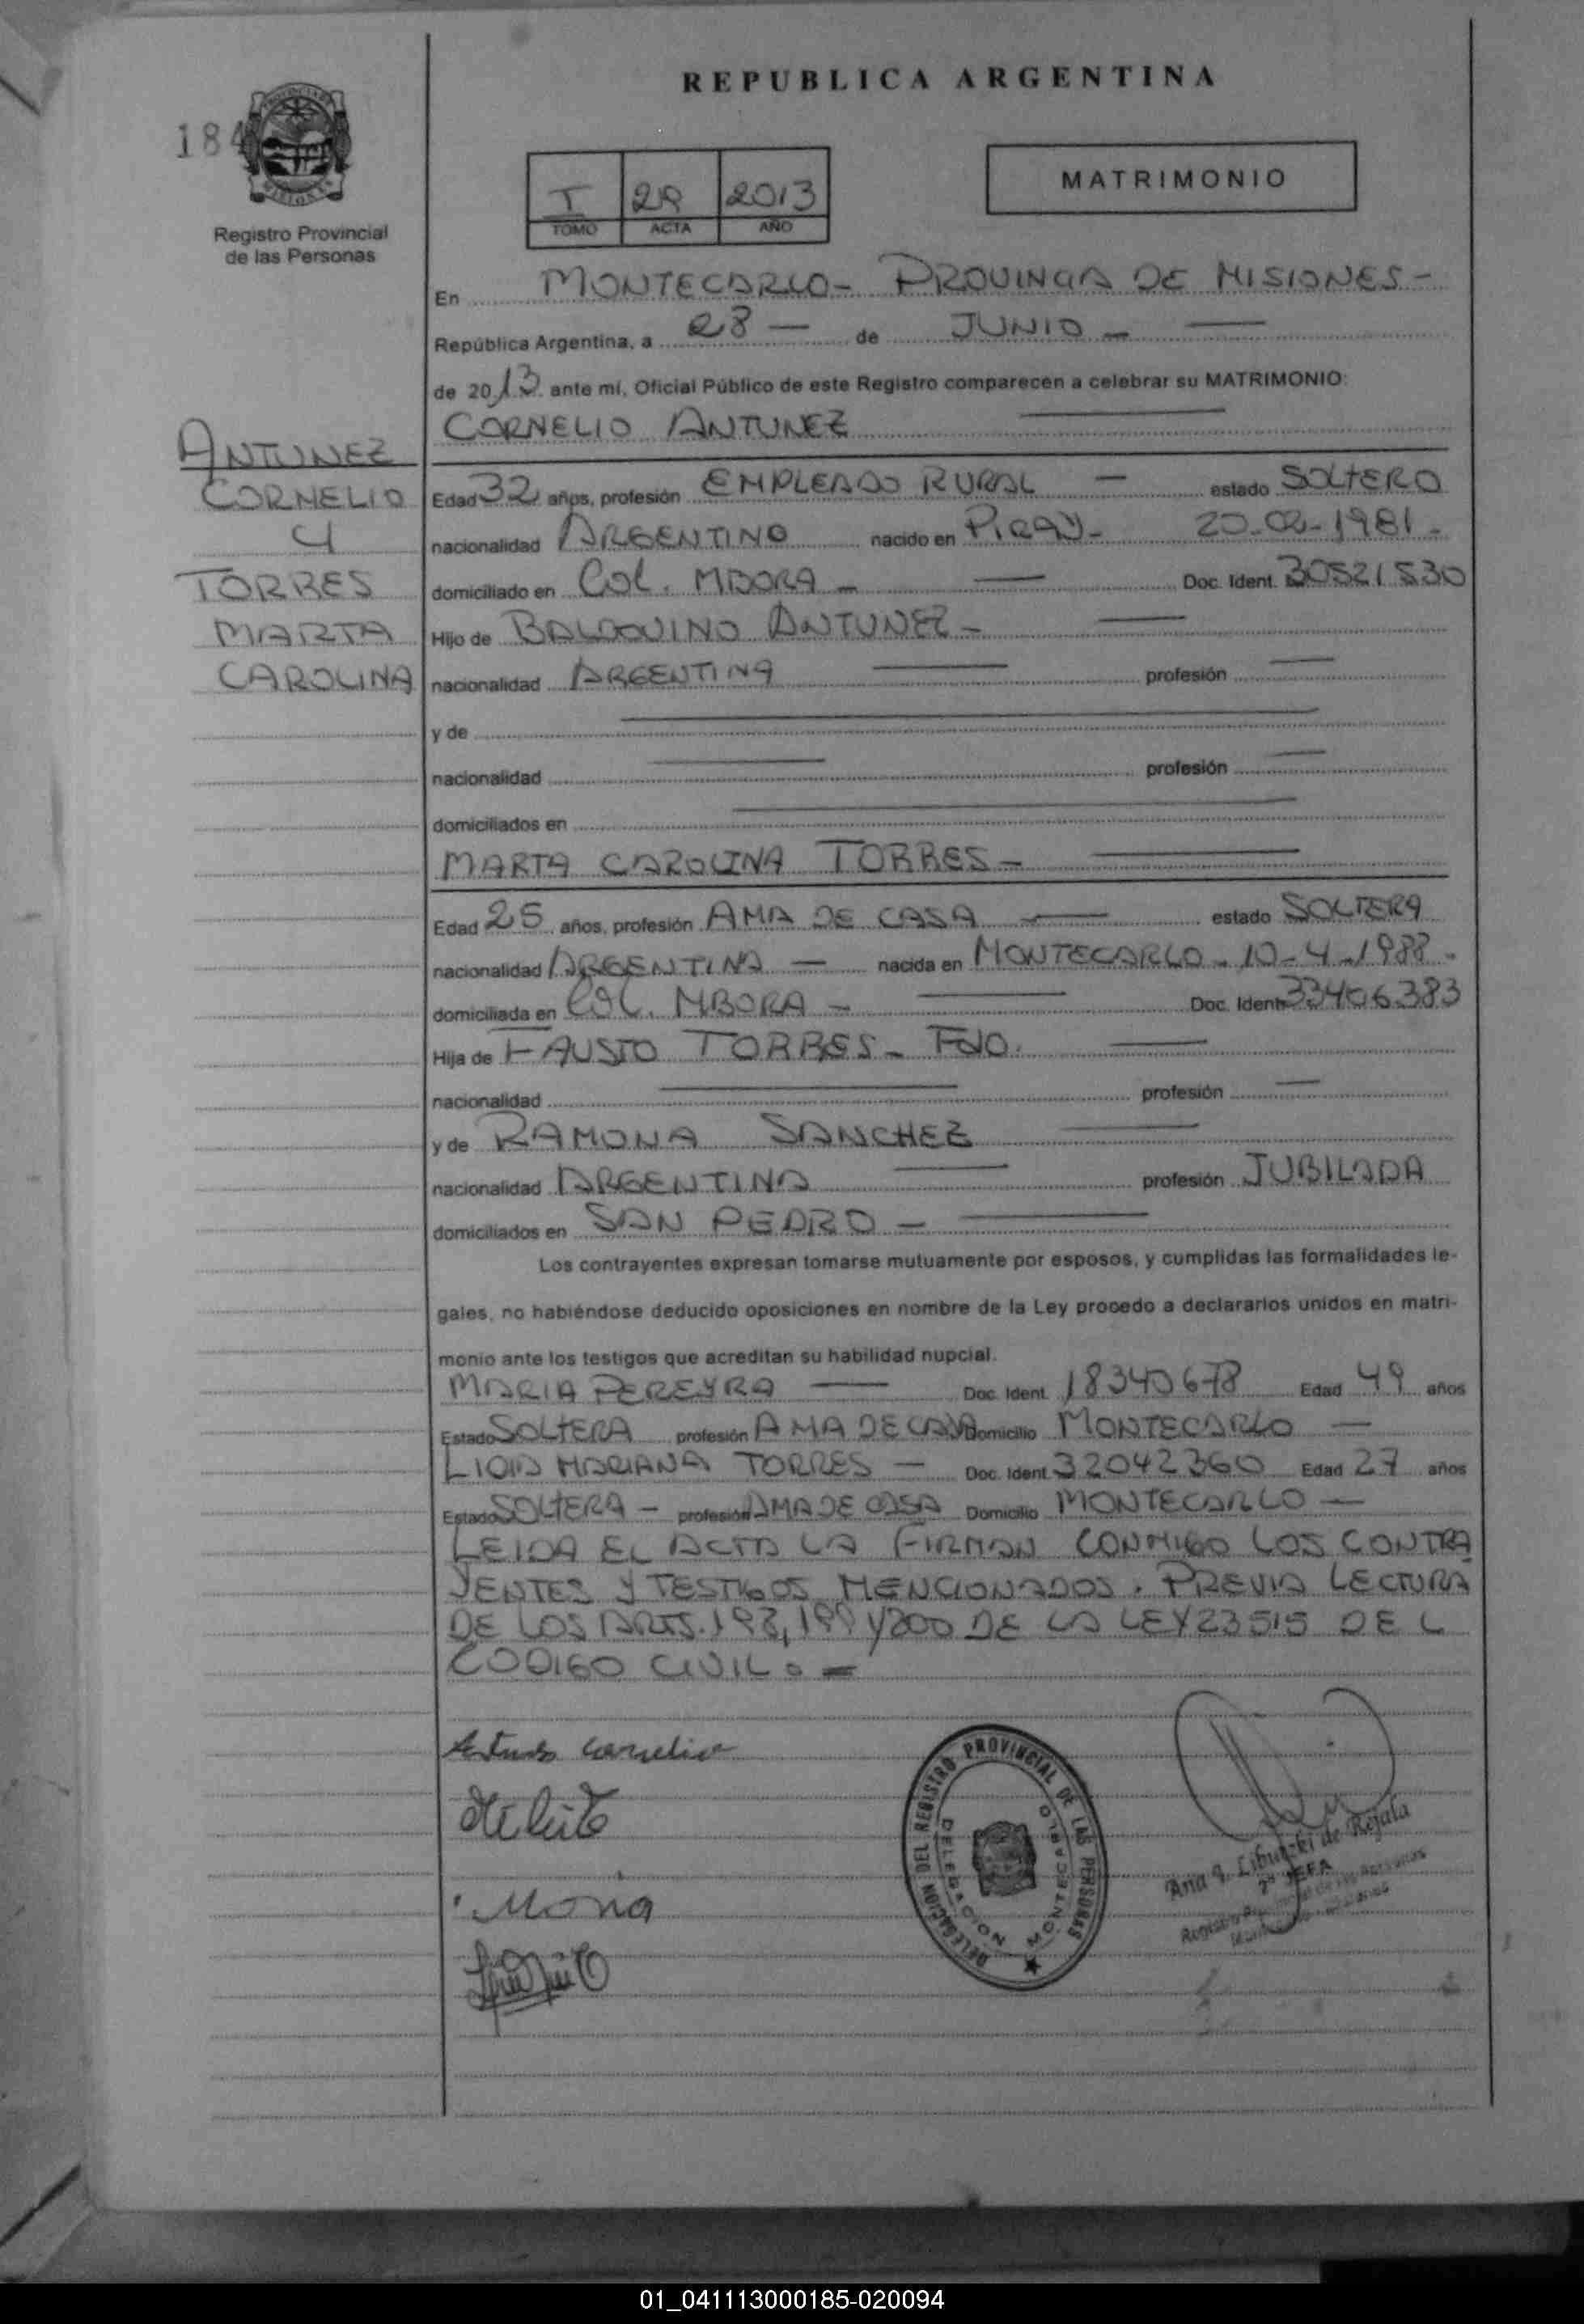 REPUBLICA ARGENTINA
184
MATRIMONIO
I 29 2013
TOMO ACTA AÑO
Registro Provincial
de las Personas
En MONTECARLO - PROVINCIA DE MISIONES -
República Argentina, a 28 — de JUNIO - —
de 2013 ante mí, Oficial Público de este Registro comparecen a celebrar su MATRIMONIO:
CORNELIO ANTUNEZ
ANTUNEZ
CORNELIO
Y
TORRES
MARTA
CAROLINA
Edad 32 años, profesión EMPLEADO RURAL — estado SOLTERO
nacionalidad ARGENTINO nacido en PIRAY - 20-02-1981 -
domiciliado en COL. MBORA - — Doc. Ident. 30521530
Hijo de BALDOVINO ANTUNEZ - —
nacionalidad ARGENTINA — profesión —
y de —
nacionalidad — profesión —
domiciliados en —
MARTA CAROLINA TORRES - —
Edad 25 años, profesión AMA DE CASA — estado SOLTERA
nacionalidad ARGENTINA — nacida en MONTECARLO - 10-4-1988 -
domiciliada en COL. MBORA - — Doc. Ident. 33406383
Hija de FAUSTO TORRES - FDO. —
nacionalidad — profesión —
y de RAMONA SANCHEZ —
nacionalidad ARGENTINA — profesión JUBILADA
domiciliados en SAN PEDRO - —
Los contrayentes expresan tomarse mutuamente por esposos, y cumplidas las formalidades le-
gales, no habiéndose deducido oposiciones en nombre de la Ley procedo a declararlos unidos en matri-
monio ante los testigos que acreditan su habilidad nupcial.
MARIA PEREYRA — Doc. Ident. 18340678 Edad 49 años
Estado SOLTERA profesión AMA DE CASA Domicilio MONTECARLO —
LIDIA MARIANA TORRES — Doc. Ident. 32042360 Edad 27 años
Estado SOLTERA - profesión AMA DE CASA Domicilio MONTECARLO —
LEIDA EL ACTA LA FIRMAN CONMIGO LOS CONTRA
YENTES Y TESTIGOS MENCIONADOS. PREVIA LECTURA
DE LOS ARTS. 198, 199 Y 200 DE LA LEY 23515 DEL
CODIGO CIVIL. =
cornelio
DELEGACION DEL REGISTRO PROVINCIAL DE LAS PERSONAS
DELEGACION MONTECARLO
Ana de Rejala
2ª JEFA
01_041113000185-020094